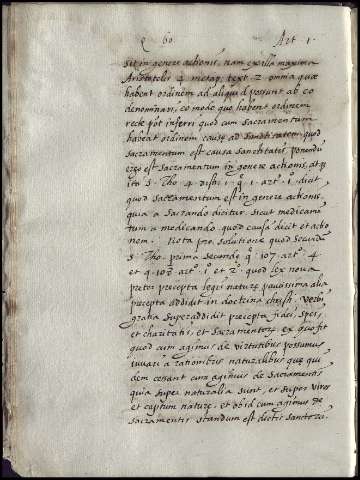 q 60. Art 1.
sit in genere actionis, nam ex illa maxima
Aristotelis 4 metap. text. 2 omnia quæ
habent ordinem ad aliquod possunt ab eo
denominari, eo modo quo habent ordinem
recte pot inferri quod cum sacramentum
habeat ordinem causæ ad sanctitatem, quod
sacramentum est causa sanctitatis ponendū
ergo est sacramentum in genere actionis, at
ita S. Tho. 4. dist. 1. q. 1. art. 1. dicit
quod sacramentum est in genere actionis
quia a sacrando dicitur sicut medicamē
tum a medicando quod causā dicit et actio
nem. Nota pro solutione quod secundū
S. Tho. prima secundæ q. 107. art. 4
et q. 108. art. 1 et 2. quod lex nova
preter precepta legis naturæ paucissima alia
precepta addidit in doctrina christi. Verbi
gratia superaddidit precepta fidei, spei,
et charitatis, et sacramentorū ex quo fit
quod cum agimus de virtutibus possumus
iuvari a rationibus naturalibus quæ qui
dem cessant cum agimus de sacramentis
quia super naturalia sunt, et super vires
et captum naturæ, et ob id cum agimus de
sacramentis standum est dictis sanctorū.